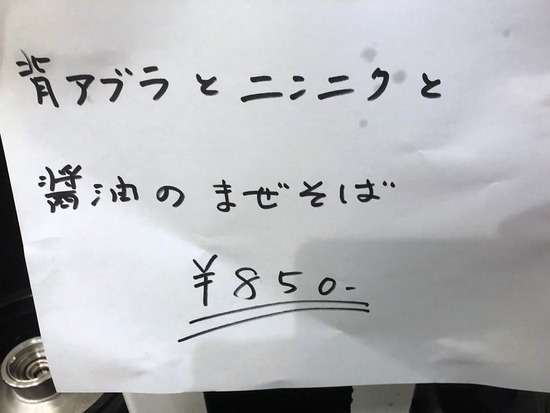 背アブラとニンニクと
醤油のまぜそば
¥850-